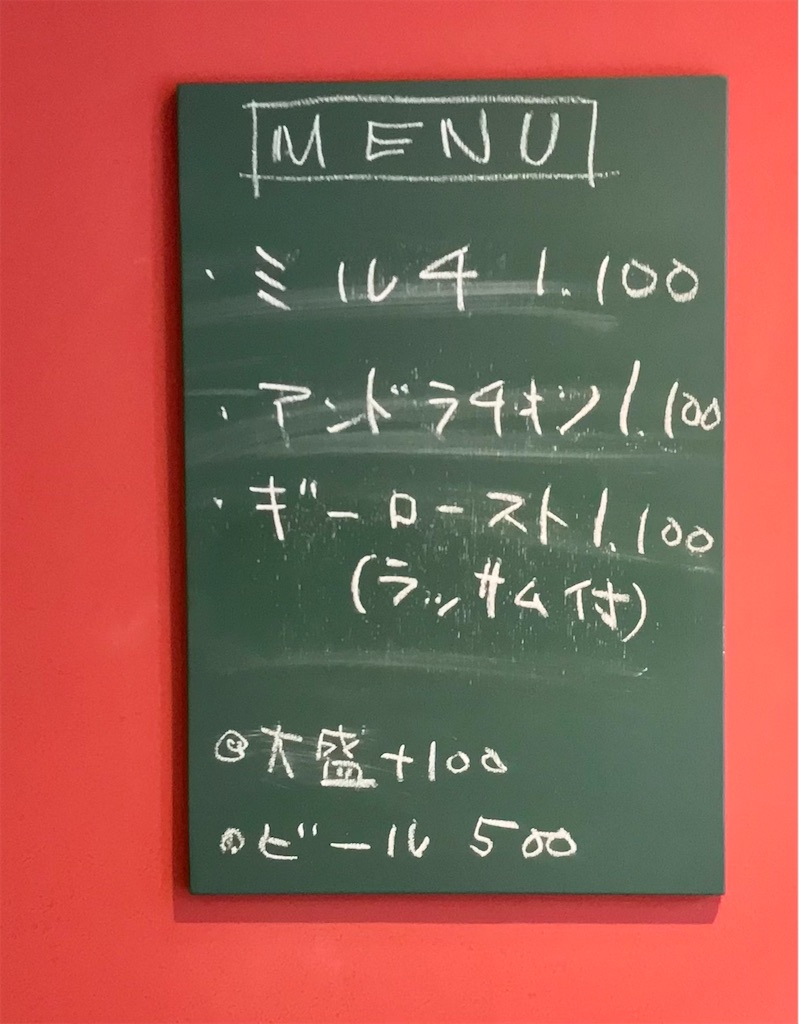 MENU
・ミルキ 1.100
・アンドラチキン 1.100
・ギーロースト 1.100
(ラッサム付)
◎大盛+100
◎ビール 500